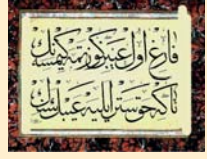 فارغ اول عیبن كوزتمه كیمسه‌نك
تا كه حق ستر ایلیه عیبك سنك